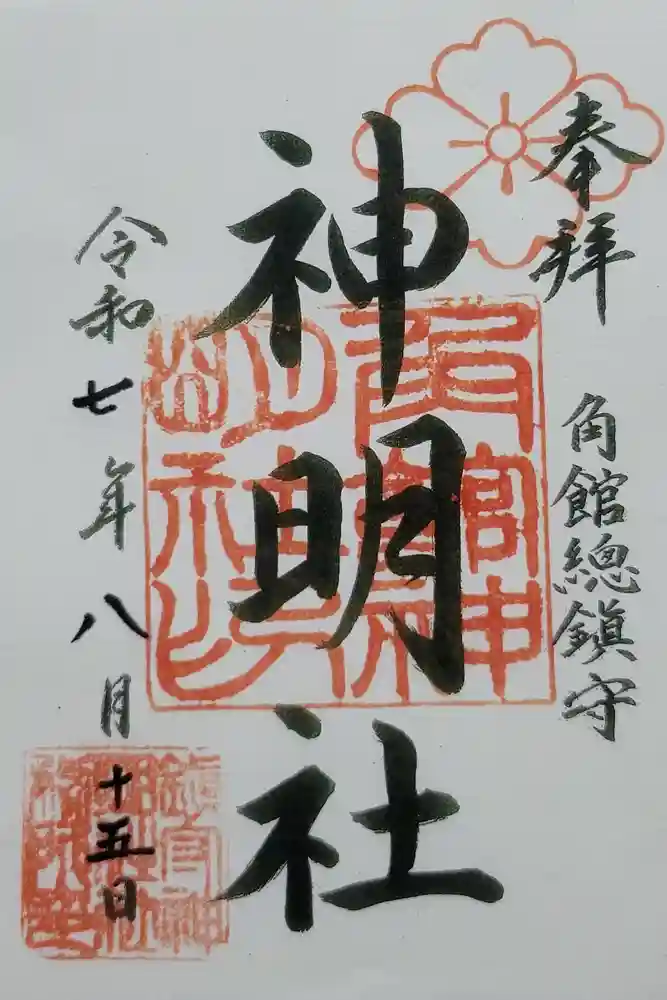 奉拝
角館總鎮守
神明社
令和七年八月十五日